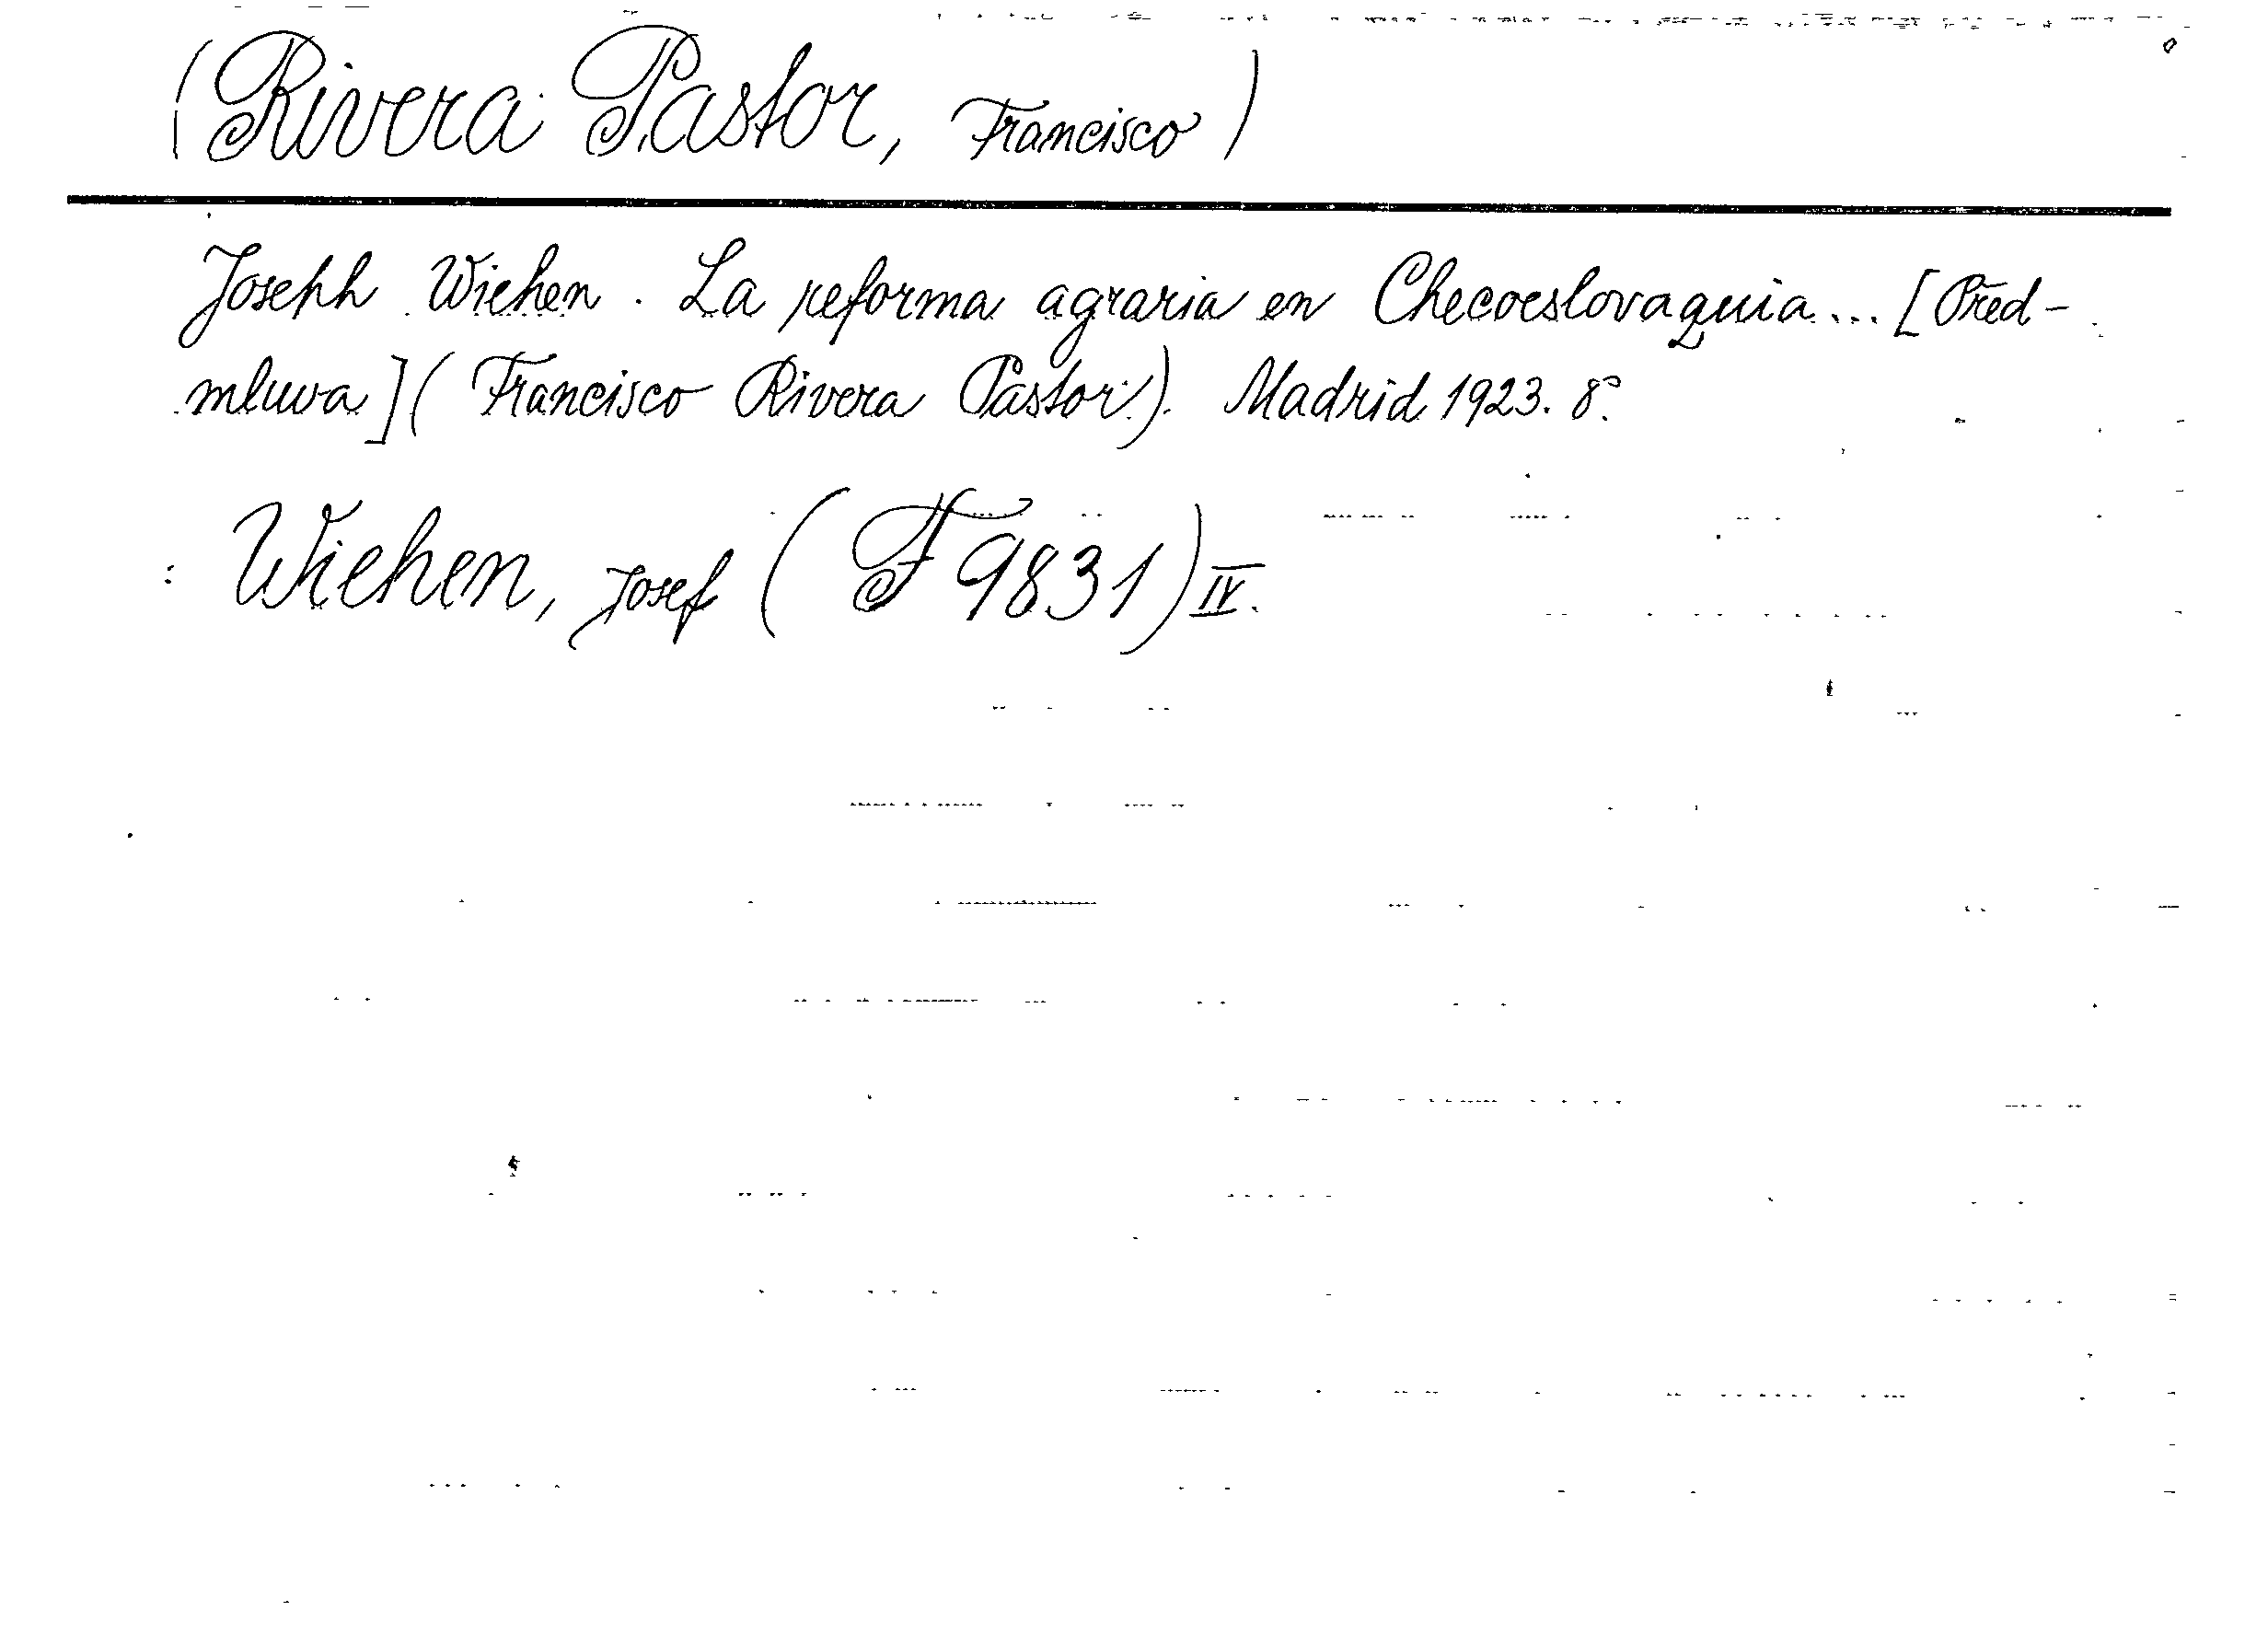 (Rivera Pastor, Francisco)
Joseph Wiehen. La reforma agraria en Checoeslovaquia... [Před-
mluva] (Francisco Rivera Pastor). Madrid 1923. 8°.
Wiehen, Josef (F 9831) IV.